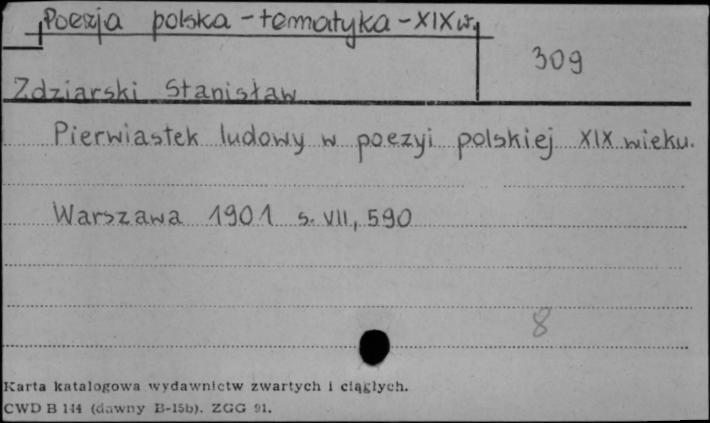 Poezja polska - tematyka - XIX w.
309
Zdziarski Stanisław
Pierwiastek ludowy w poezyi polskiej XIX wieku.
Warszawa 1901 s. VII, 590
8
Karta katalogowa wydawnictw zwartych i ciągłych.
CWD B 144 (dawny B-15b). ZGG 91.